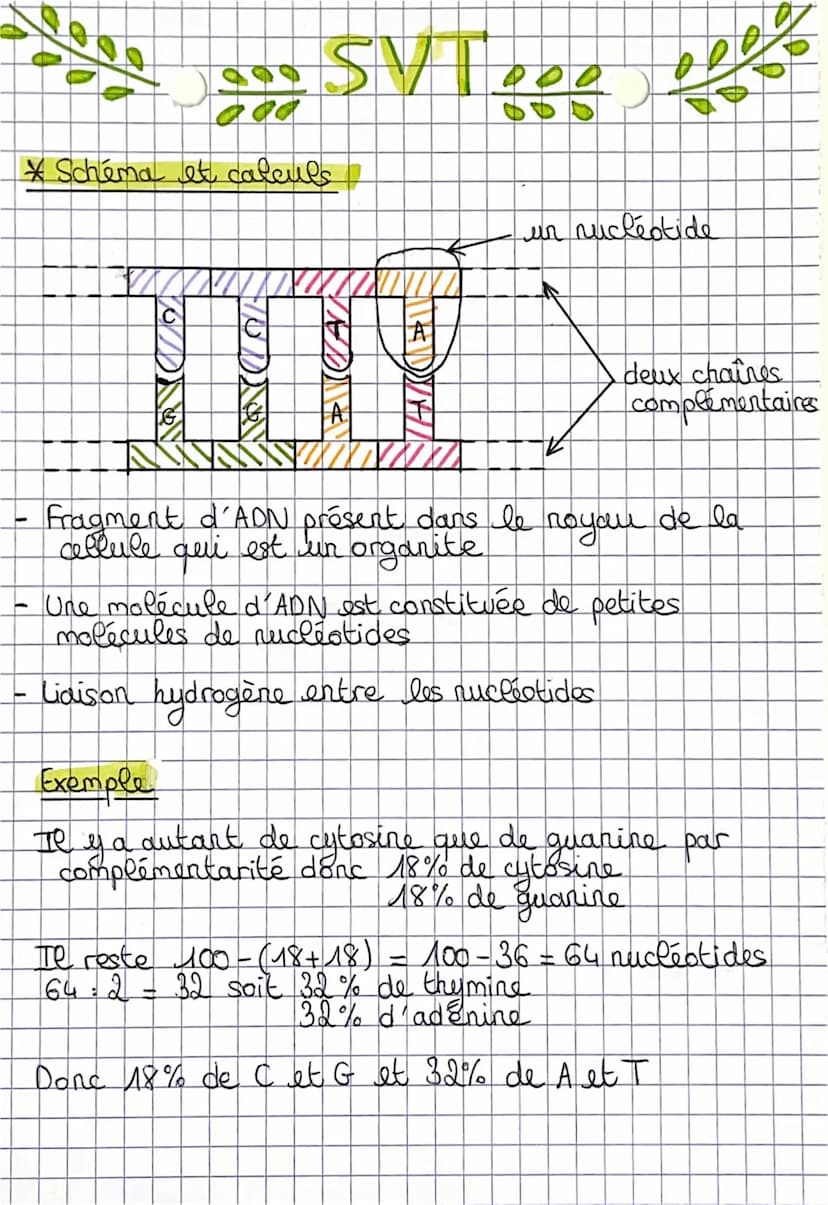 SVT
* Schéma et calculs
un nucléotide
C C T A
deux chaînes
complémentaires
G G A T
- Fragment d'ADN présent dans le noyau de la
cellule qui est un organite
- Une molécule d'ADN est constituée de petites
molécules de nucléotides
- Liaison hydrogène entre les nucléotides
Exemple
Il y a autant de cytosine que de guanine par
complémentarité donc 18% de cytosine
18% de guanine
Il reste 100-(18+18) = 100-36 = 64 nucléotides
64 : 2 = 32 soit 32% de thymine
32% d'adénine
Donc 18% de C et G et 32% de A et T